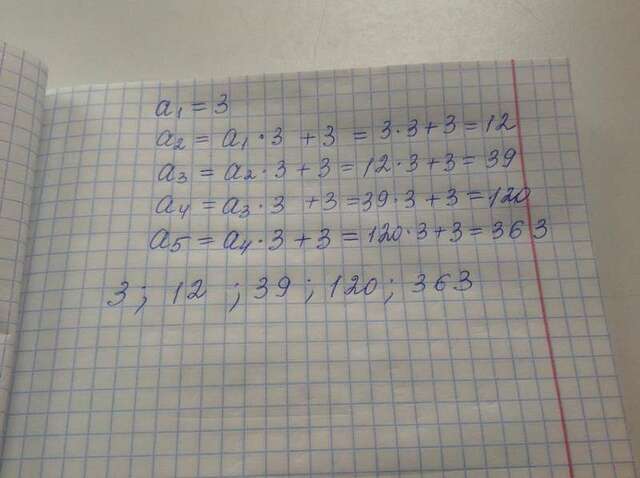 a₁ = 3
a₂ = a₁ · 3 + 3 = 3 · 3 + 3 = 12
a₃ = a₂ · 3 + 3 = 12 · 3 + 3 = 39
a₄ = a₃ · 3 + 3 = 39 · 3 + 3 = 120
a₅ = a₄ · 3 + 3 = 120 · 3 + 3 = 363
3; 12 ; 39; 120; 363